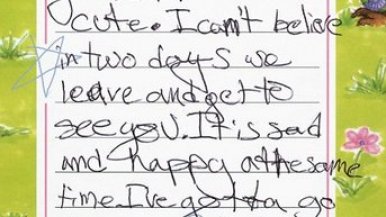 cute. I can't believe
in two days we
leave and get to
see you. It is sad
and happy at the same
time. I've gotta go